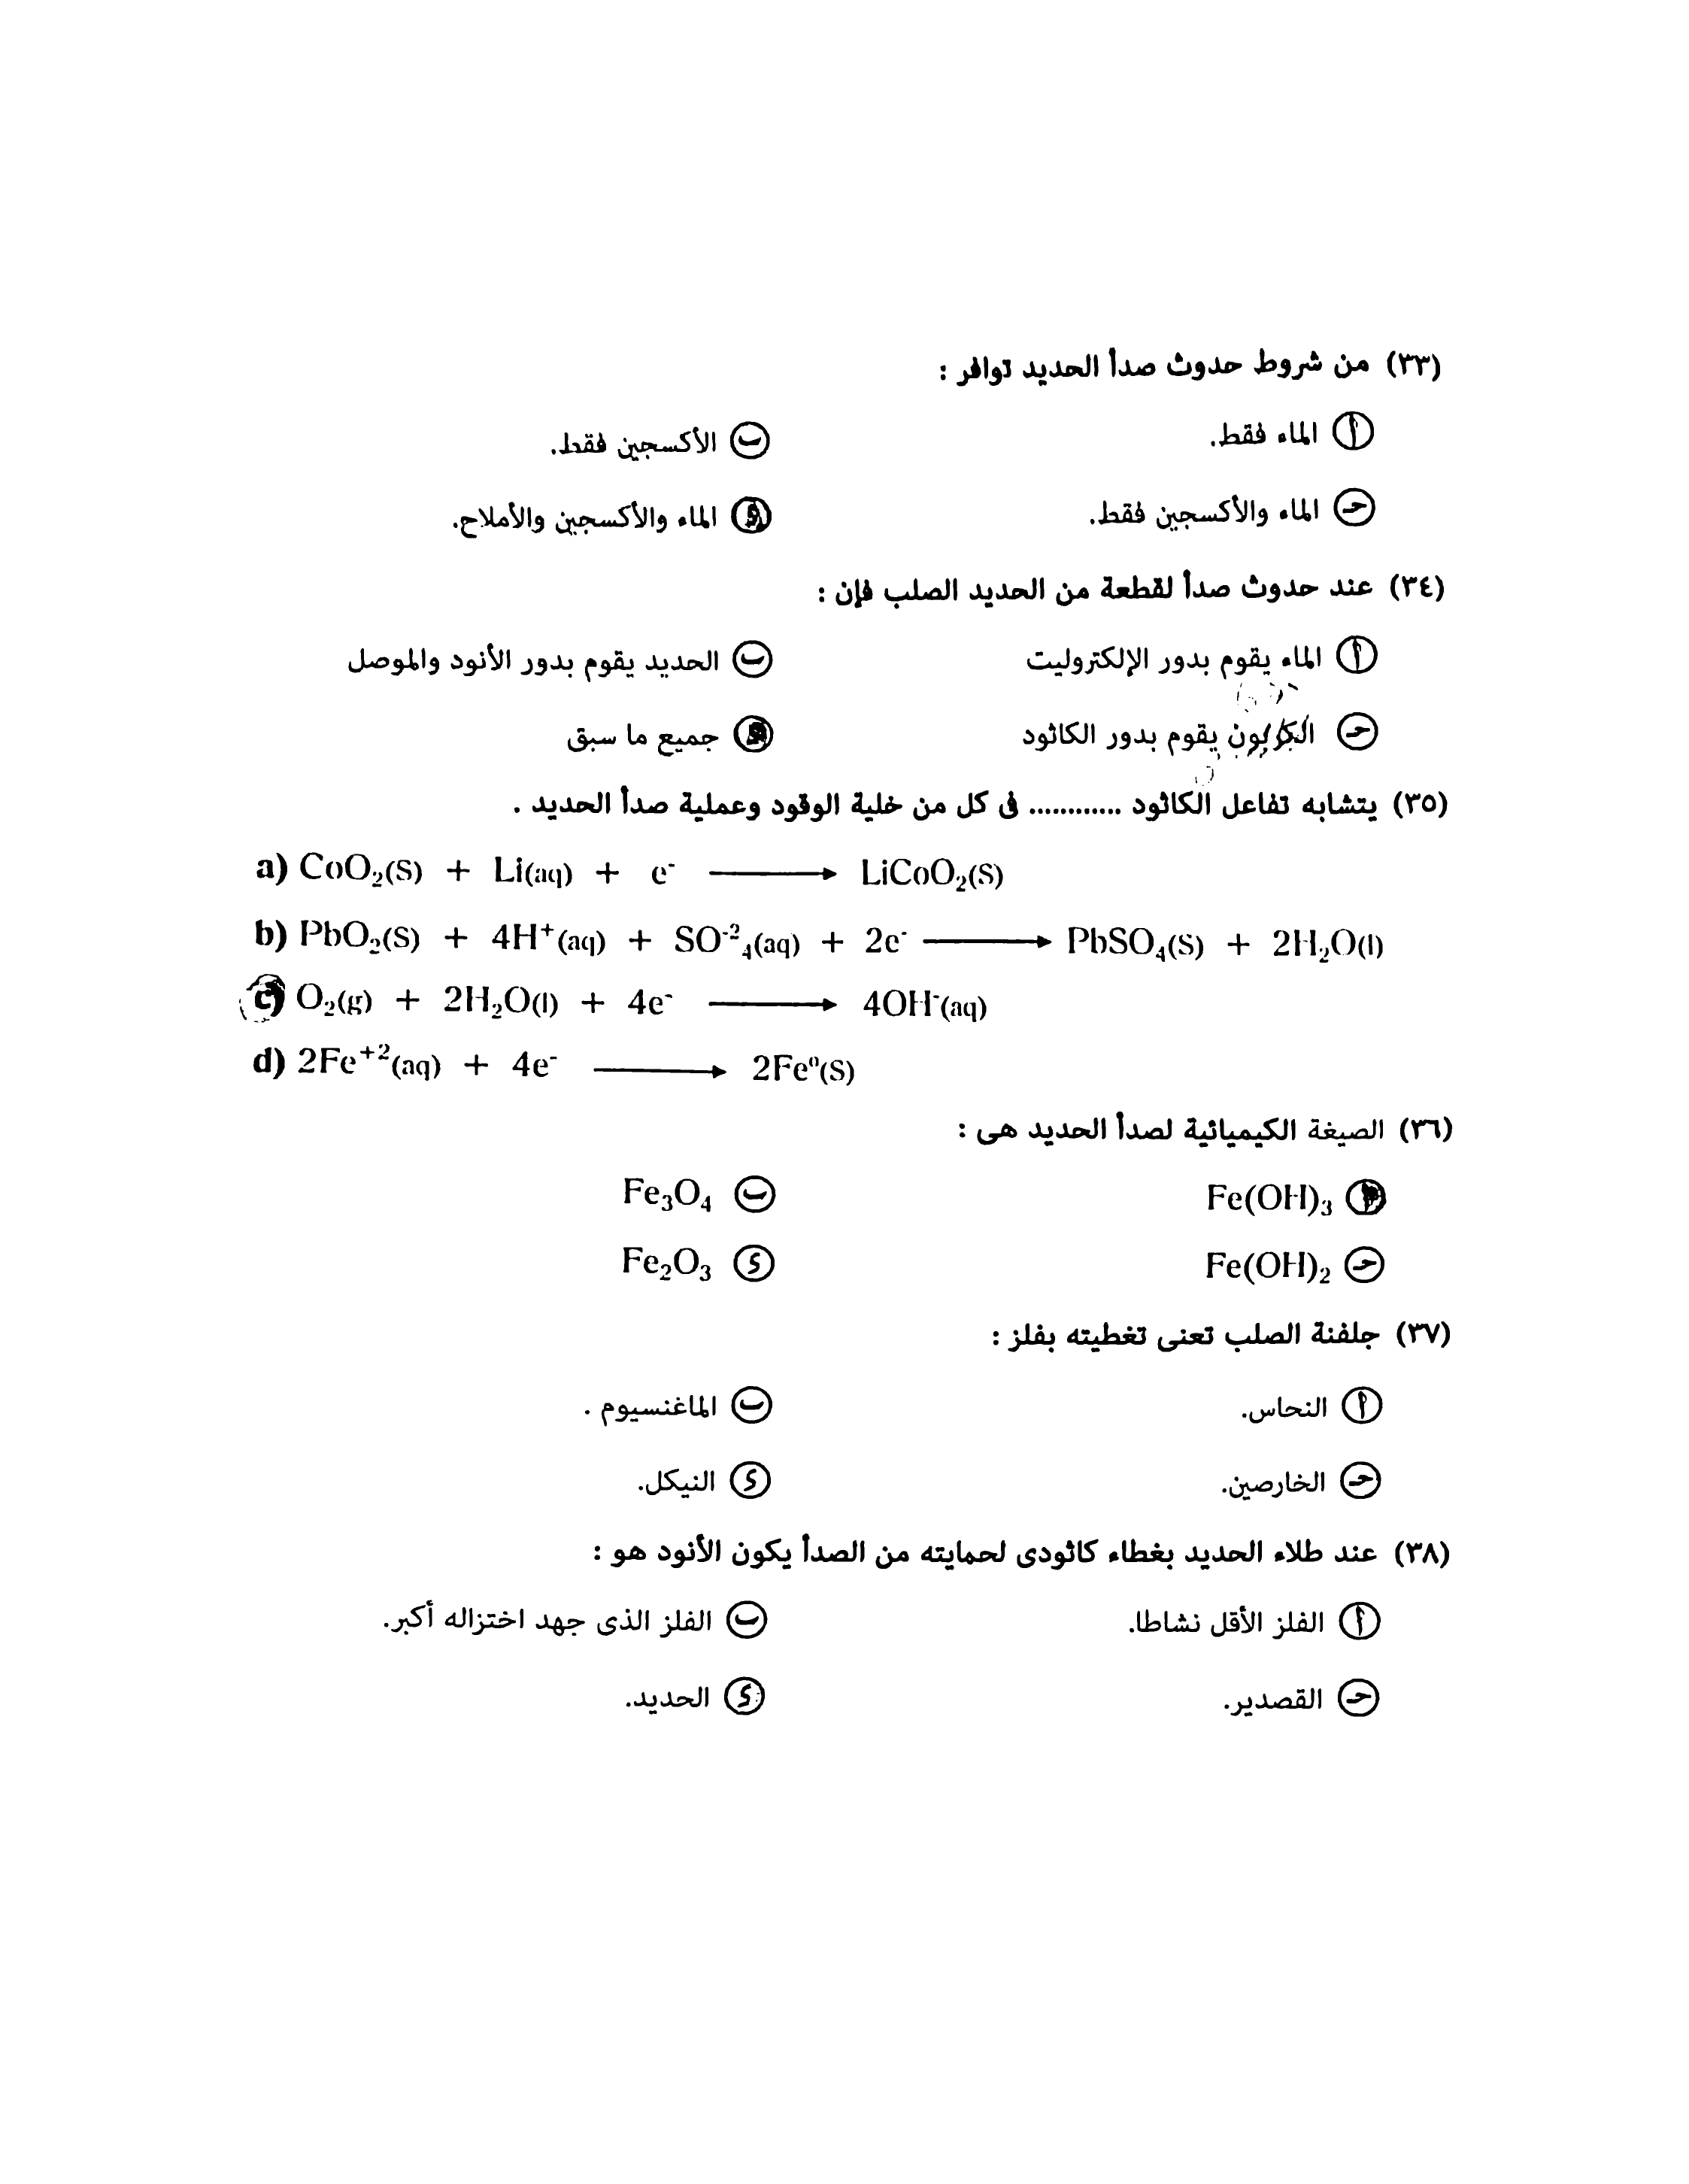 (٣٣) من شروط حدوث صدأ الحديد توافر :
أ الماء فقط. ب الأكسجين فقط.
حـ الماء والأكسجين فقط. د الماء والأكسجين والأملاح.
(٣٤) عند حدوث صدأ لقطعة من الحديد الصلب فإن :
أ الماء يقوم بدور الإلكتروليت ب الحديد يقوم بدور الأنود والموصل
حـ الكربون يقوم بدور الكاثود د جميع ما سبق
(٣٥) يتشابه تفاعل الكاثود ............ فى كل من خلية الوقود وعملية صدأ الحديد .
a) CoO₂(S) + Li(aq) + e⁻ ⟶ LiCoO₂(S)
b) PbO₂(S) + 4H⁺(aq) + SO⁻²₄(aq) + 2e⁻ ⟶ PbSO₄(S) + 2H₂O(l)
c) O₂(g) + 2H₂O(l) + 4e⁻ ⟶ 4OH⁻(aq)
d) 2Fe⁺²(aq) + 4e⁻ ⟶ 2Fe⁰(S)
(٣٦) الصيغة الكيميائية لصدأ الحديد هى :
أ Fe(OH)₃ ب Fe₃O₄
حـ Fe(OH)₂ د Fe₂O₃
(٣٧) جلفنة الصلب تعنى تغطيته بفلز :
أ النحاس. ب الماغنسيوم .
حـ الخارصين. د النيكل.
(٣٨) عند طلاء الحديد بغطاء كاثودى لحمايته من الصدأ يكون الأنود هو :
أ الفلز الأقل نشاطا. ب الفلز الذى جهد اختزاله أكبر.
حـ القصدير. د الحديد.